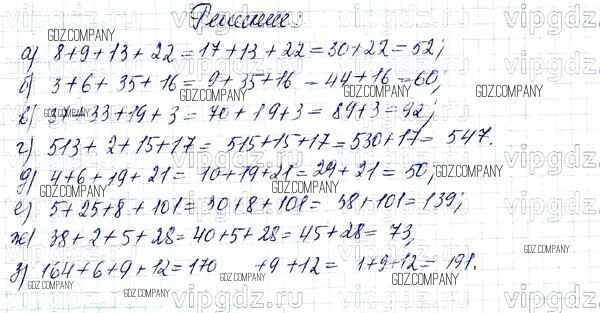 Решение:
а) 8+9+13+22=17+13+22=30+22=52;
б) 3+6+35+16=9+35+16=44+16=60;
в) 37+33+19+3=70+19+3=89+3=92;
г) 513+2+15+17=515+15+17=530+17=547.
д) 4+6+19+21=10+19+21=29+21=50;
е) 5+25+8+101=30+8+101=38+101=139;
ж) 38+2+5+28=40+5+28=45+28=73,
з) 164+6+9+12=170 +9+12= 1+9+12=191.
GDZ.COMPANY
vipgdz.ru